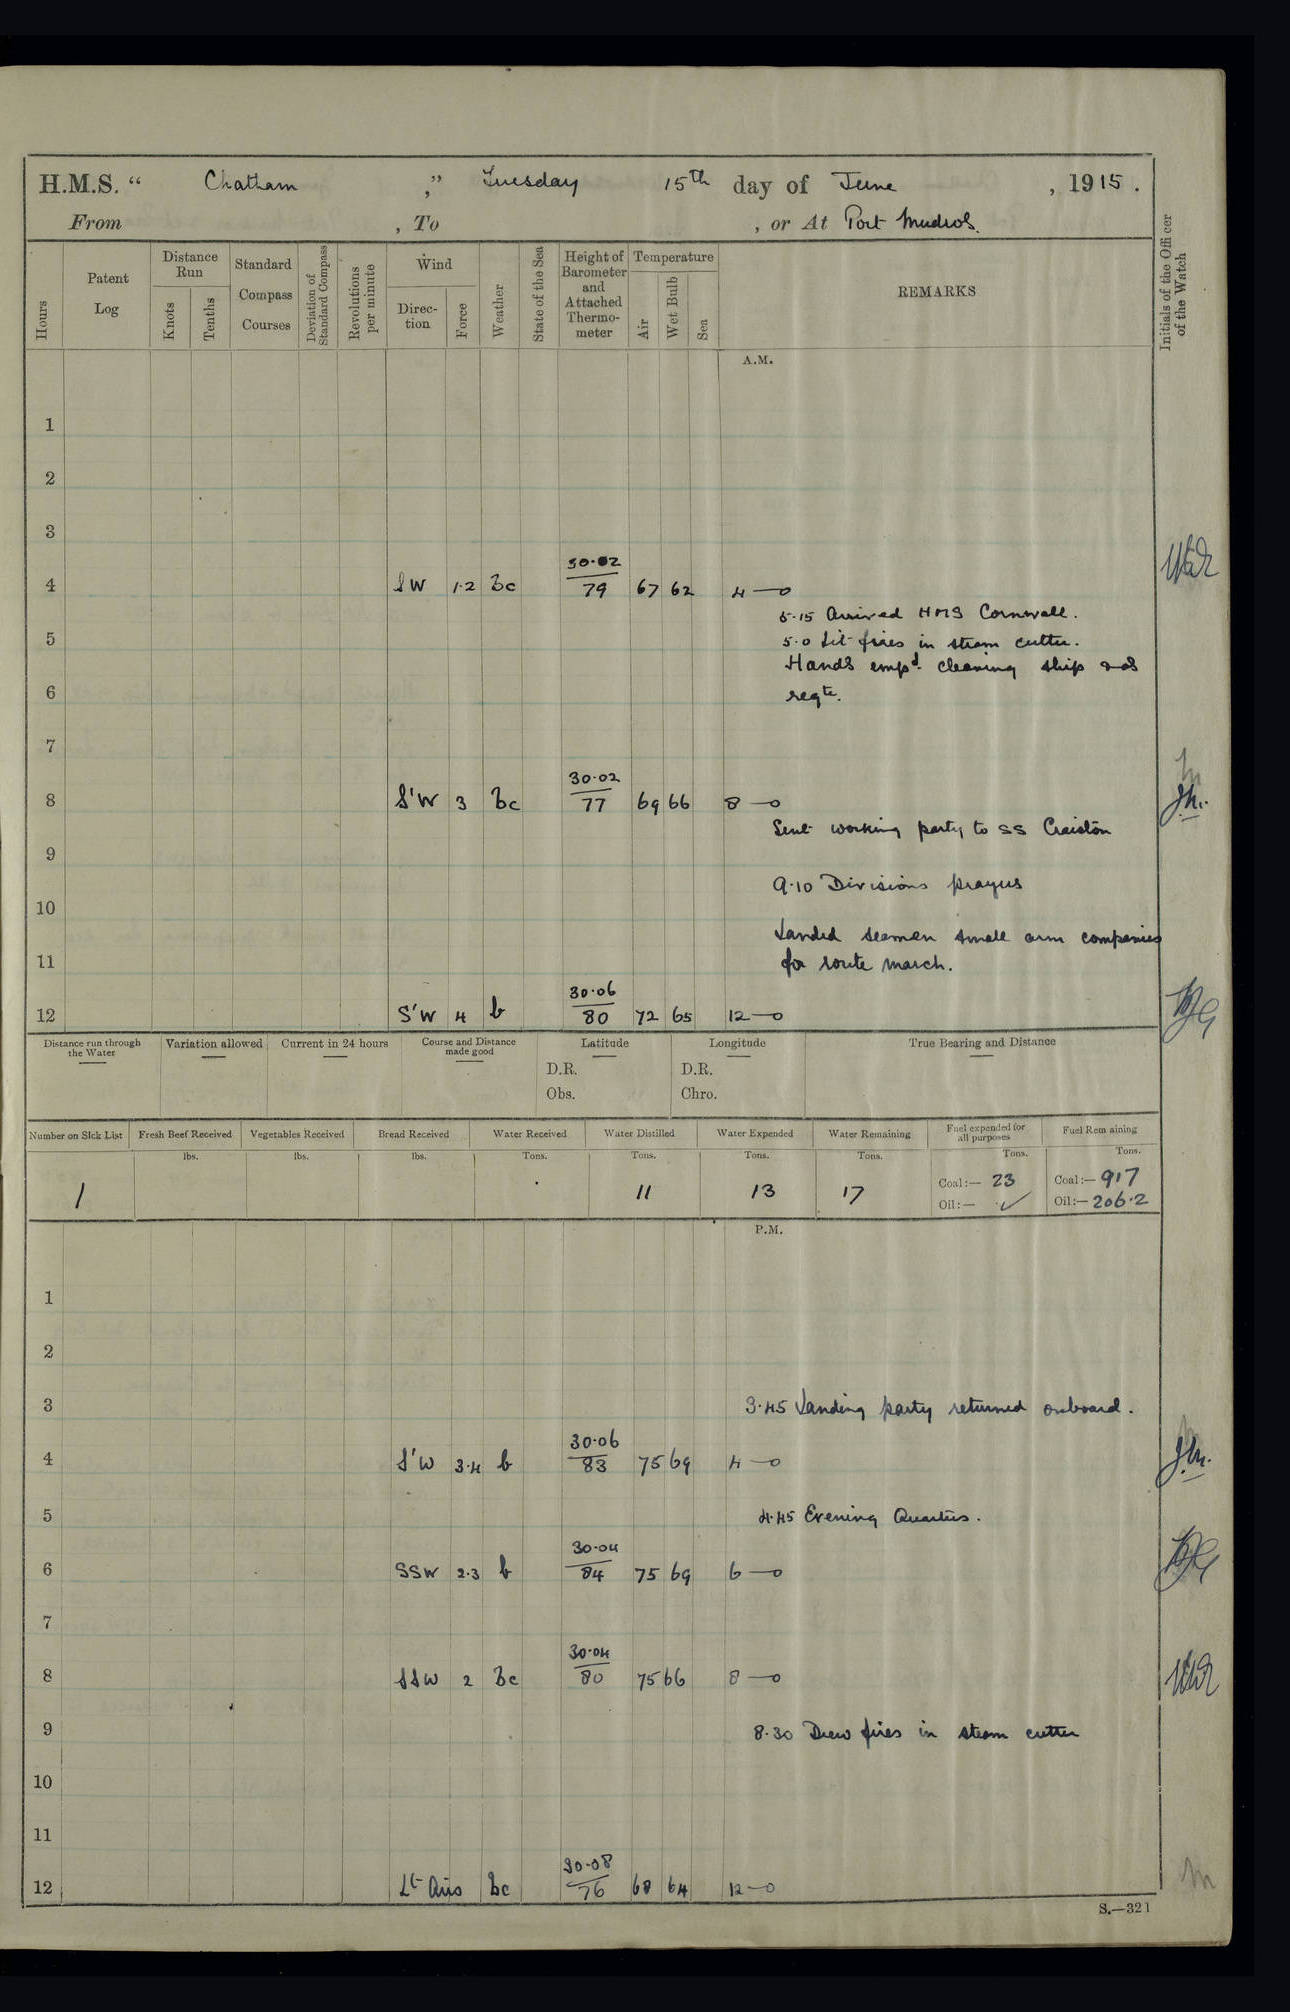 H.M.S. “ Chatham ,” Tuesday 15th day of June , 1915 .
From , To , or At Port Mudros.
Hours
Patent Log
Distance Run
Knots
Tenths
Standard Compass Courses
Deviation of Standard Compass
Revolutions per minute
Wind
Direc- tion
Force
Weather
State of the Sea
Height of Barometer and Attached Thermo- meter
Temperature
Air
Wet Bulb
Sea
REMARKS
Initials of the Officer of the Watch
A.M.
1
2
3
4 SW 1·2 bc 30·02 79 67 62 4 —o
5·15 Arrived HMS Cornwall.
5 5·0 Lit fires in steam cutter.
Hands empd. cleaning ship & as
6 reqte.
7
8 S'W 3 bc 30·02 77 69 66 8 —o
Sent working party to SS
9
9·10 Divisions prayers
10
Landed seamen small arm companies
11 for route march.
12 S'W 4 b 30·06 80 72 65 12 —o
Distance run through the Water
Variation allowed
Current in 24 hours
Course and Distance made good
Latitude
D.R.
Obs.
Longitude
D.R.
Chro.
True Bearing and Distance
Number on Sick List Fresh Beef Received Vegetables Received Bread Received Water Received Water Distilled Water Expended Water Remaining Fuel expended for all purposes Fuel Remaining
lbs. lbs. lbs. Tons. Tons. Tons. Tons. Tons. Tons.
1 11 13 17 Coal:— 23 Coal:— 917
Oil:— ✓ Oil:— 206·2
P.M.
1
2
3 3·45 Landing party returned onboard.
4 S'W 3·4 b 30·06 83 75 69 4 —o
5 4·45 Evening Quarters.
6 SSW 2·3 b 30·04 84 75 69 6 —o
7
8 SSW 2 bc 30·04 80 75 66 8 —o
9 8·30 Drew fires in steam cutter
10
11
12 Lt Airs bc 30·08 76 68 64 12 —o
S.—321